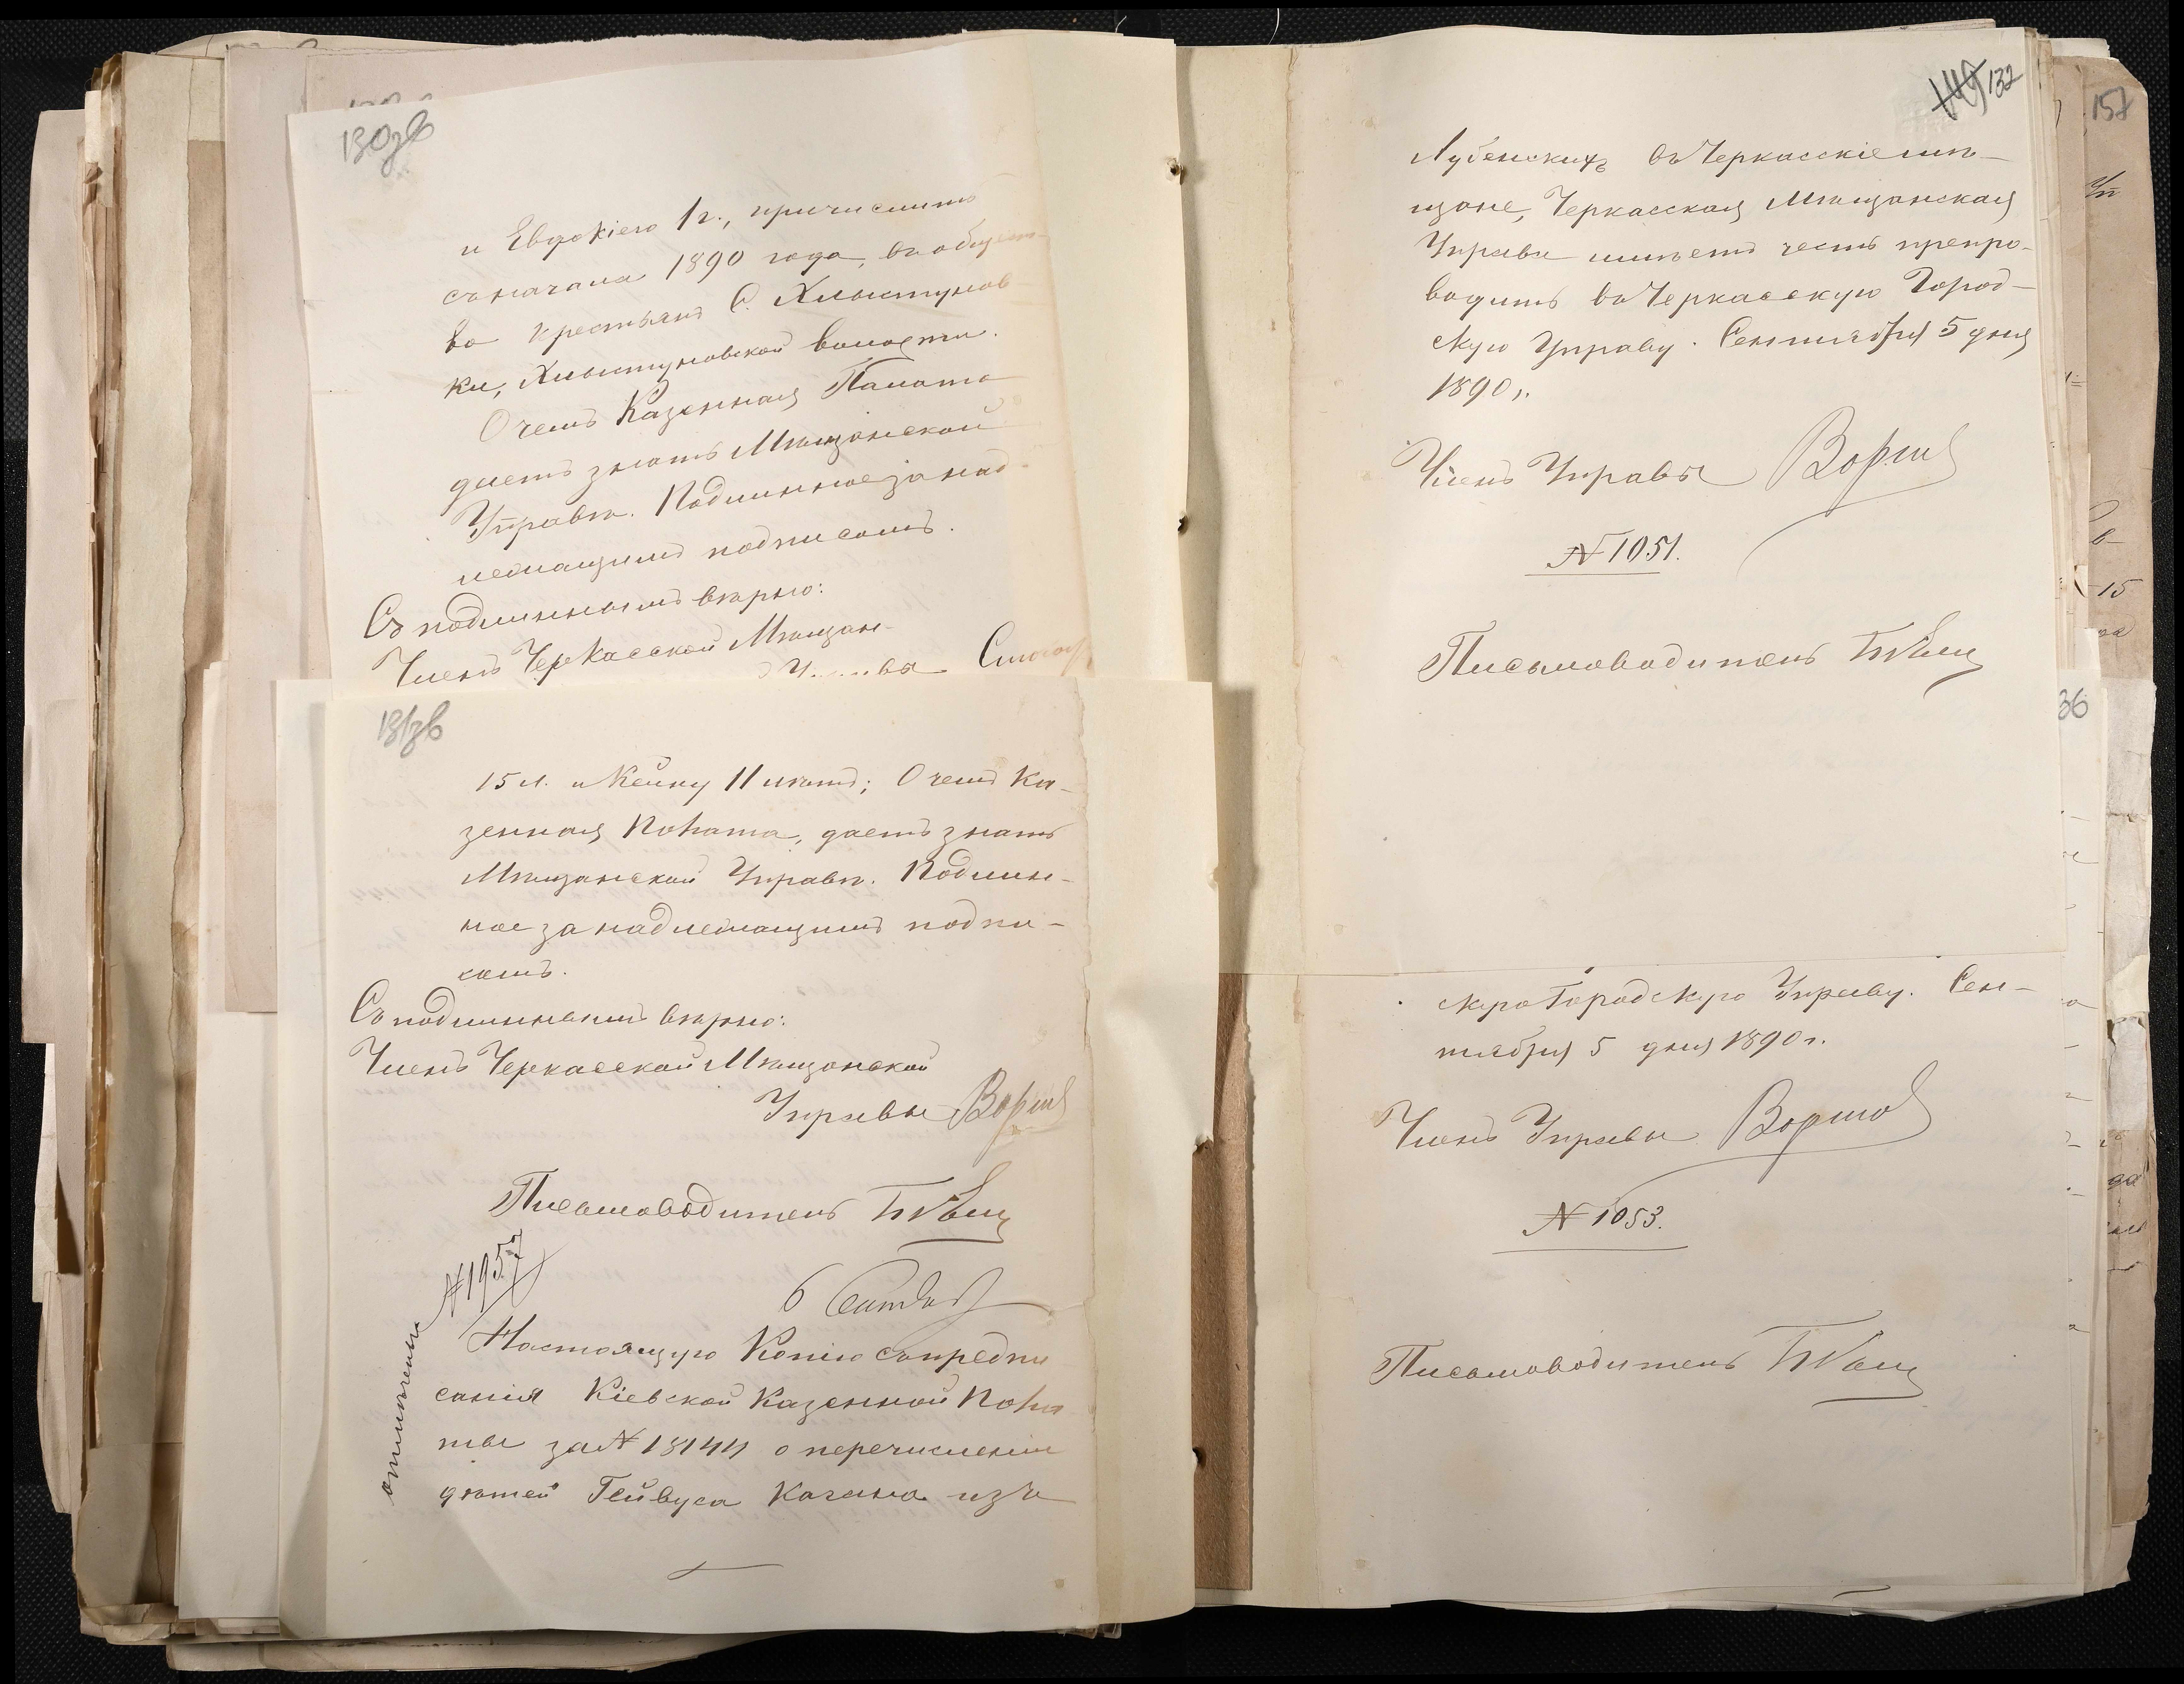 130зв
и Евдокiею 1 г., причислить
съ начала 1890 года, въ общест-
во крестьянъ С. Хлыстунов-
ки, Хлыстуновской волости.
О чемъ Казенная Палата
даетъ знать Мѣщанской
Управѣ. Подлинное за над-
лежащимъ подписомъ.
Съ подлиннымъ вѣрно:
Членъ Черкасской Мѣщан-
131зв
15 л. и Кейну 11 лѣтъ; О чемъ Ка-
зенная Палата, даетъ знать
Мѣщанской Управѣ. Подлин-
ное за надлежащимъ подпи-
сомъ.
Съ подлиннымъ вѣрно:
Членъ Черкасской Мѣщанской
Управы
Письмоводитель
№ 1957
6 Сентяб
отмѣчены
Настоящую Копiю съ предпи
санiя Кiевской Казенной Пала
ты за № 18144 о перечисленiи
дѣтей Гейвуса Кагана изъ
149 132
Лубенскихъ въ Черкасскiе мѣ-
щане, Черкасская Мѣщанская
Управа имѣетъ честь препро-
водить въ Черкасскую Город-
скую Управу. Сентября 5 дня
1890 г.
Членъ Управы
№ 1051.
Письмоводитель
скую Городскую Управу. Сен-
тября 5 дня 1890 г.
Членъ Управы
№ 1053.
Письмоводитель
157
36
15